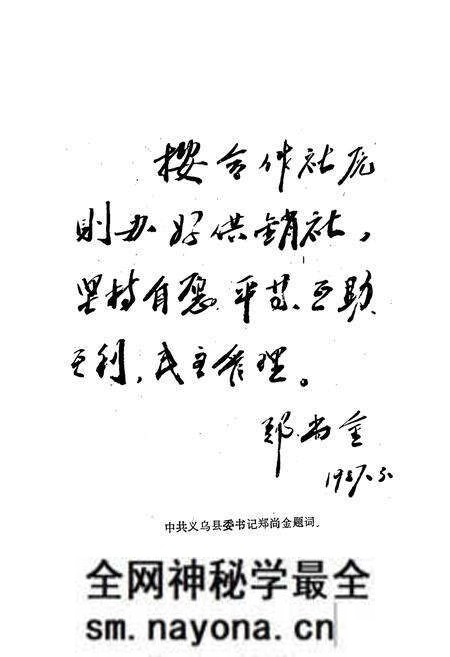 按合作社原
则办好供销社，
坚持自愿、平等、互助、
互利，民主管理。
郑尚金
1987.5.
中共义乌县委书记郑尚金题词。
全网神秘学最全
sm.nayona.cn